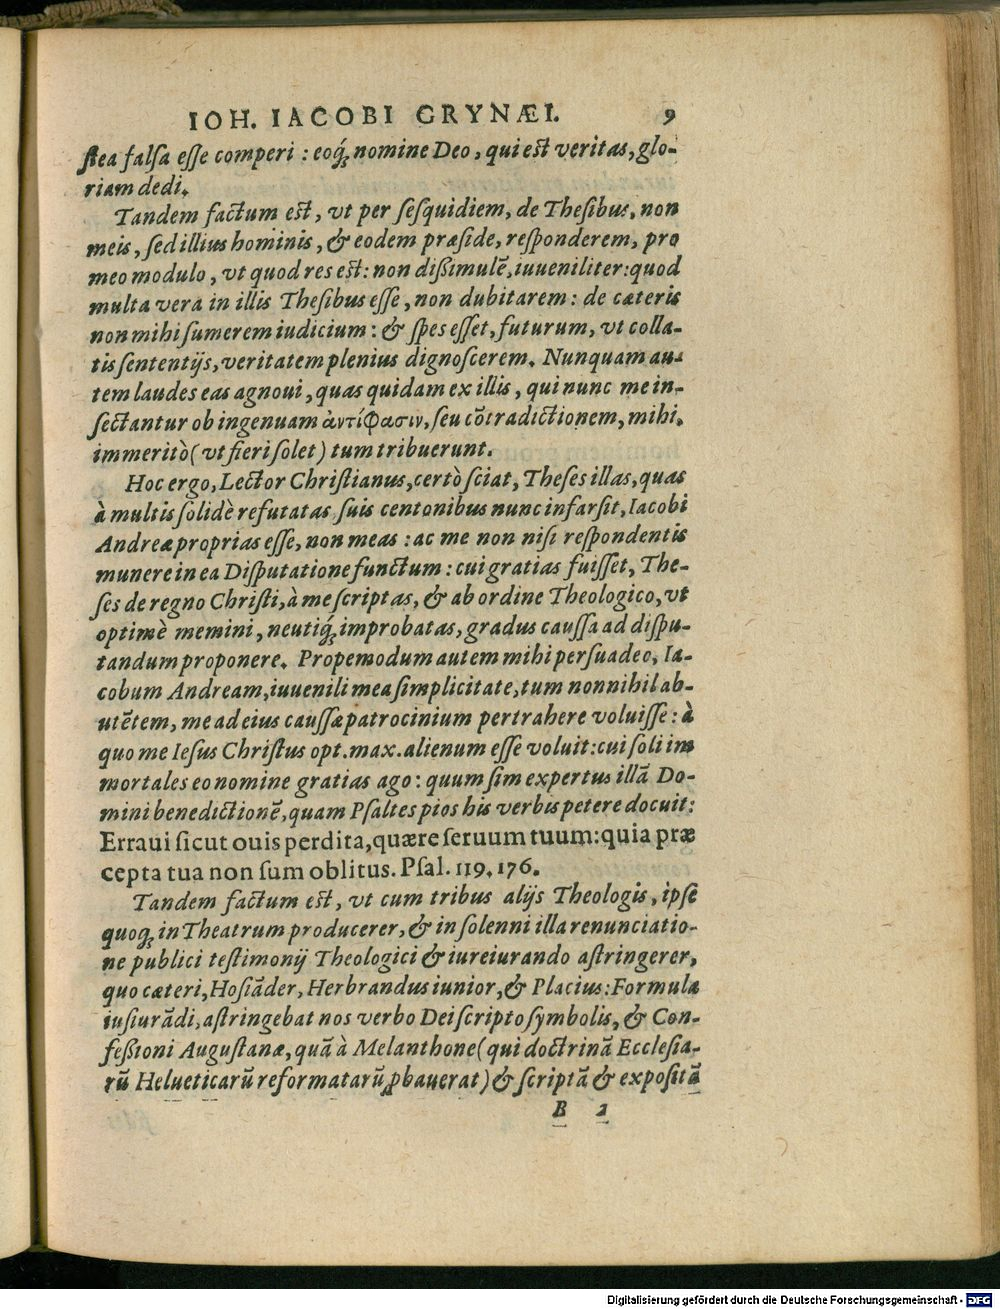 IOH. IACOBI GRYNÆI. 9
ſtea falſa eſſe comperi : eoq́; nomine Deo, qui est veritas, glo-
riam dedi.
Tandem factum est, vt per ſeſquidiem, de Theſibus, non
meis, ſed illius hominis, & eodem præſide, reſponderem, pro
meo modulo, vt quod res est: non dißimulē, iuueniliter: quod
multa vera in illis Theſibus eſſe, non dubitarem: de cæteris
non mihi ſumerem iudicium: & ſpes eſſet, futurum, vt colla-
tis ſententijs, veritatem plenius dignoſcerem. Nunquam au-
tem laudes eas agnoui, quas quidam ex illis, qui nunc me in-
ſectantur ob ingenuam ἀντίφασιν, ſeu cōtradictionem, mihi,
immeritò (vt fieri ſolet) tum tribuerunt.
Hoc ergo, Lector Chriſtianus, certò ſciat, Theſes illas, quas
à multis ſolidè refutatas ſuis centonibus nunc infarſit, Iacobi
Andreæ proprias eſſe, non meas : ac me non niſi reſpondentis
munere in ea Diſputatione functum: cui gratias fuiſſet, The-
ſes de regno Chriſti, à me ſcriptas, & ab ordine Theologico, vt
optimè memini, neutiq́; improbatas, gradus cauſſa ad diſpu-
tandum proponere. Propemodum autem mihi perſuadeo, Ia-
cobum Andream, iuuenili mea ſimplicitate, tum nonnihil ab-
utētem, me ad eius cauſſæ patrocinium pertrahere voluiſſe: à
quo me Ieſus Chriſtus opt. max. alienum eſſe voluit: cui ſoli im
mortales eo nomine gratias ago: quum ſim expertus illā Do-
mini benedictionē, quam Pſaltes pios his verbis petere docuit:
Erraui ſicut ouis perdita, quære ſeruum tuum: quia præ
cepta tua non ſum oblitus. Pſal. 119. 176.
Tandem factum est, vt cum tribus alijs Theologis, ipſe
quoq; in Theatrum producerer, & in ſolenni illa renunciatio-
ne publici teſtimonij Theologici & iureiurando aſtringerer,
quo cæteri, Hoſiāder, Herbrandus iunior, & Placius: Formula
iuſiurādi, aſtringebat nos verbo Dei ſcripto ſymbolis, & Con-
feßioni Auguſtanæ, quā à Melanthone (qui doctrinā Eccleſia-
rū Helueticarū reformatarū ꝓbauerat) & ſcriptā & expoſitā
B 2
Digitalisierung gefördert durch die Deutsche Forschungsgemeinschaft - DFG